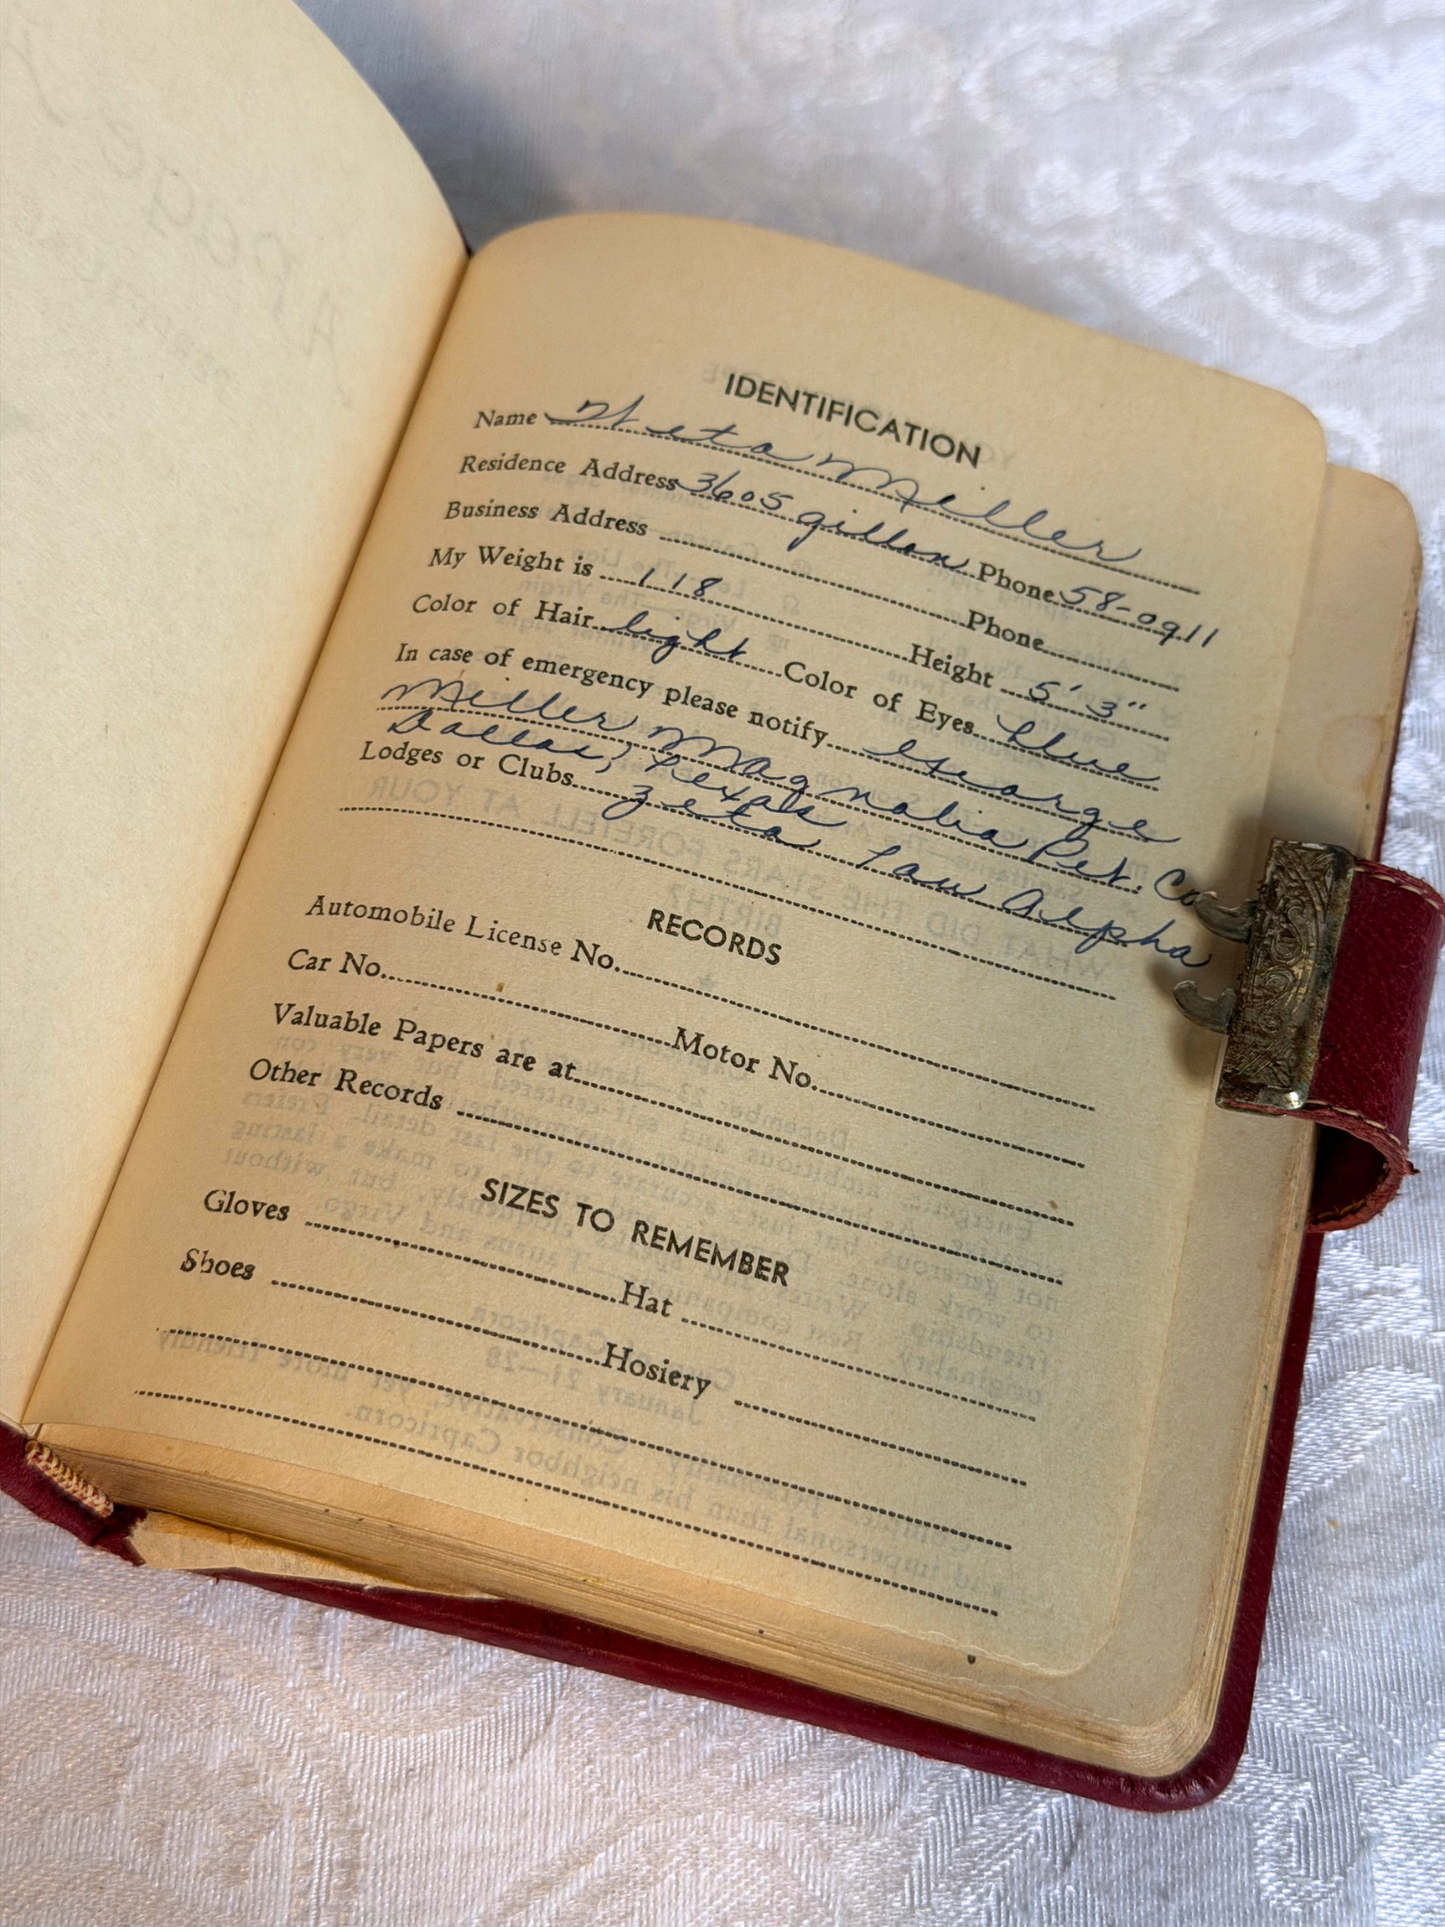 IDENTIFICATION
Name Neta Miller
Residence Address 3605 gillon Phone 58-0911
Business Address Phone
My Weight is 118 Height 5' 3"
Color of Hair light Color of Eyes blue
In case of emergency please notify George
Miller Magnolia Pet. Co
Dallas, Texas
Lodges or Clubs Zeta Taw Alpha
RECORDS
Automobile License No.
Car No. Motor No.
Valuable Papers are at
Other Records
SIZES TO REMEMBER
Gloves Hat
Shoes Hosiery